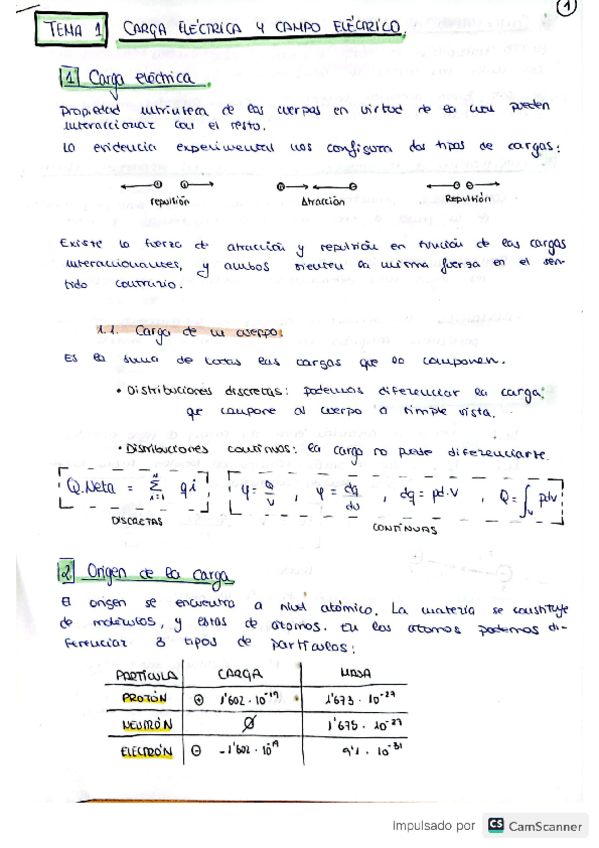 1
TEMA 1 CARGA ELÉCTRICA Y CAMPO ELÉCTRICO.
1 Carga eléctrica.
Propiedad intrínseca de los cuerpos en virtud de la cual pueden
interaccionar con el resto.
La evidencia experimental nos configura dos tipos de cargas:
repulsión Atracción Repulsión
Existe la fuerza de atracción y repulsión en función de las cargas
interaccionantes, y ambos sienten la misma fuerza en el sen-
tido contrario.
1.1. Carga de un cuerpo:
Es la suma de todas las cargas que lo componen.
• Distribuciones discretas: podemos diferenciar la carga
que compone al cuerpo a simple vista.
• Distribuciones continuas: la carga no puede diferenciarse.
Q.Neta = Σ qi , φ = Q/V , φ = dq/dv , dq = ρd.V , Q = ∫v ρdv
DISCRETAS CONTINUAS
2 Origen de la carga
El origen se encuentra a nivel atómico. La materia se constituye
de moléculas, y estas de átomos. En los átomos podemos di-
ferenciar 3 tipos de partículas:
PARTÍCULA CARGA MASA
PROTÓN ⊕ 1'602 · 10⁻¹⁹ 1'673 · 10⁻²⁷
NEUTRÓN Ø 1'675 · 10⁻²⁷
ELECTRÓN ⊖ -1'602 · 10⁻¹⁹ 9'1 · 10⁻³¹
Impulsado por CS CamScanner